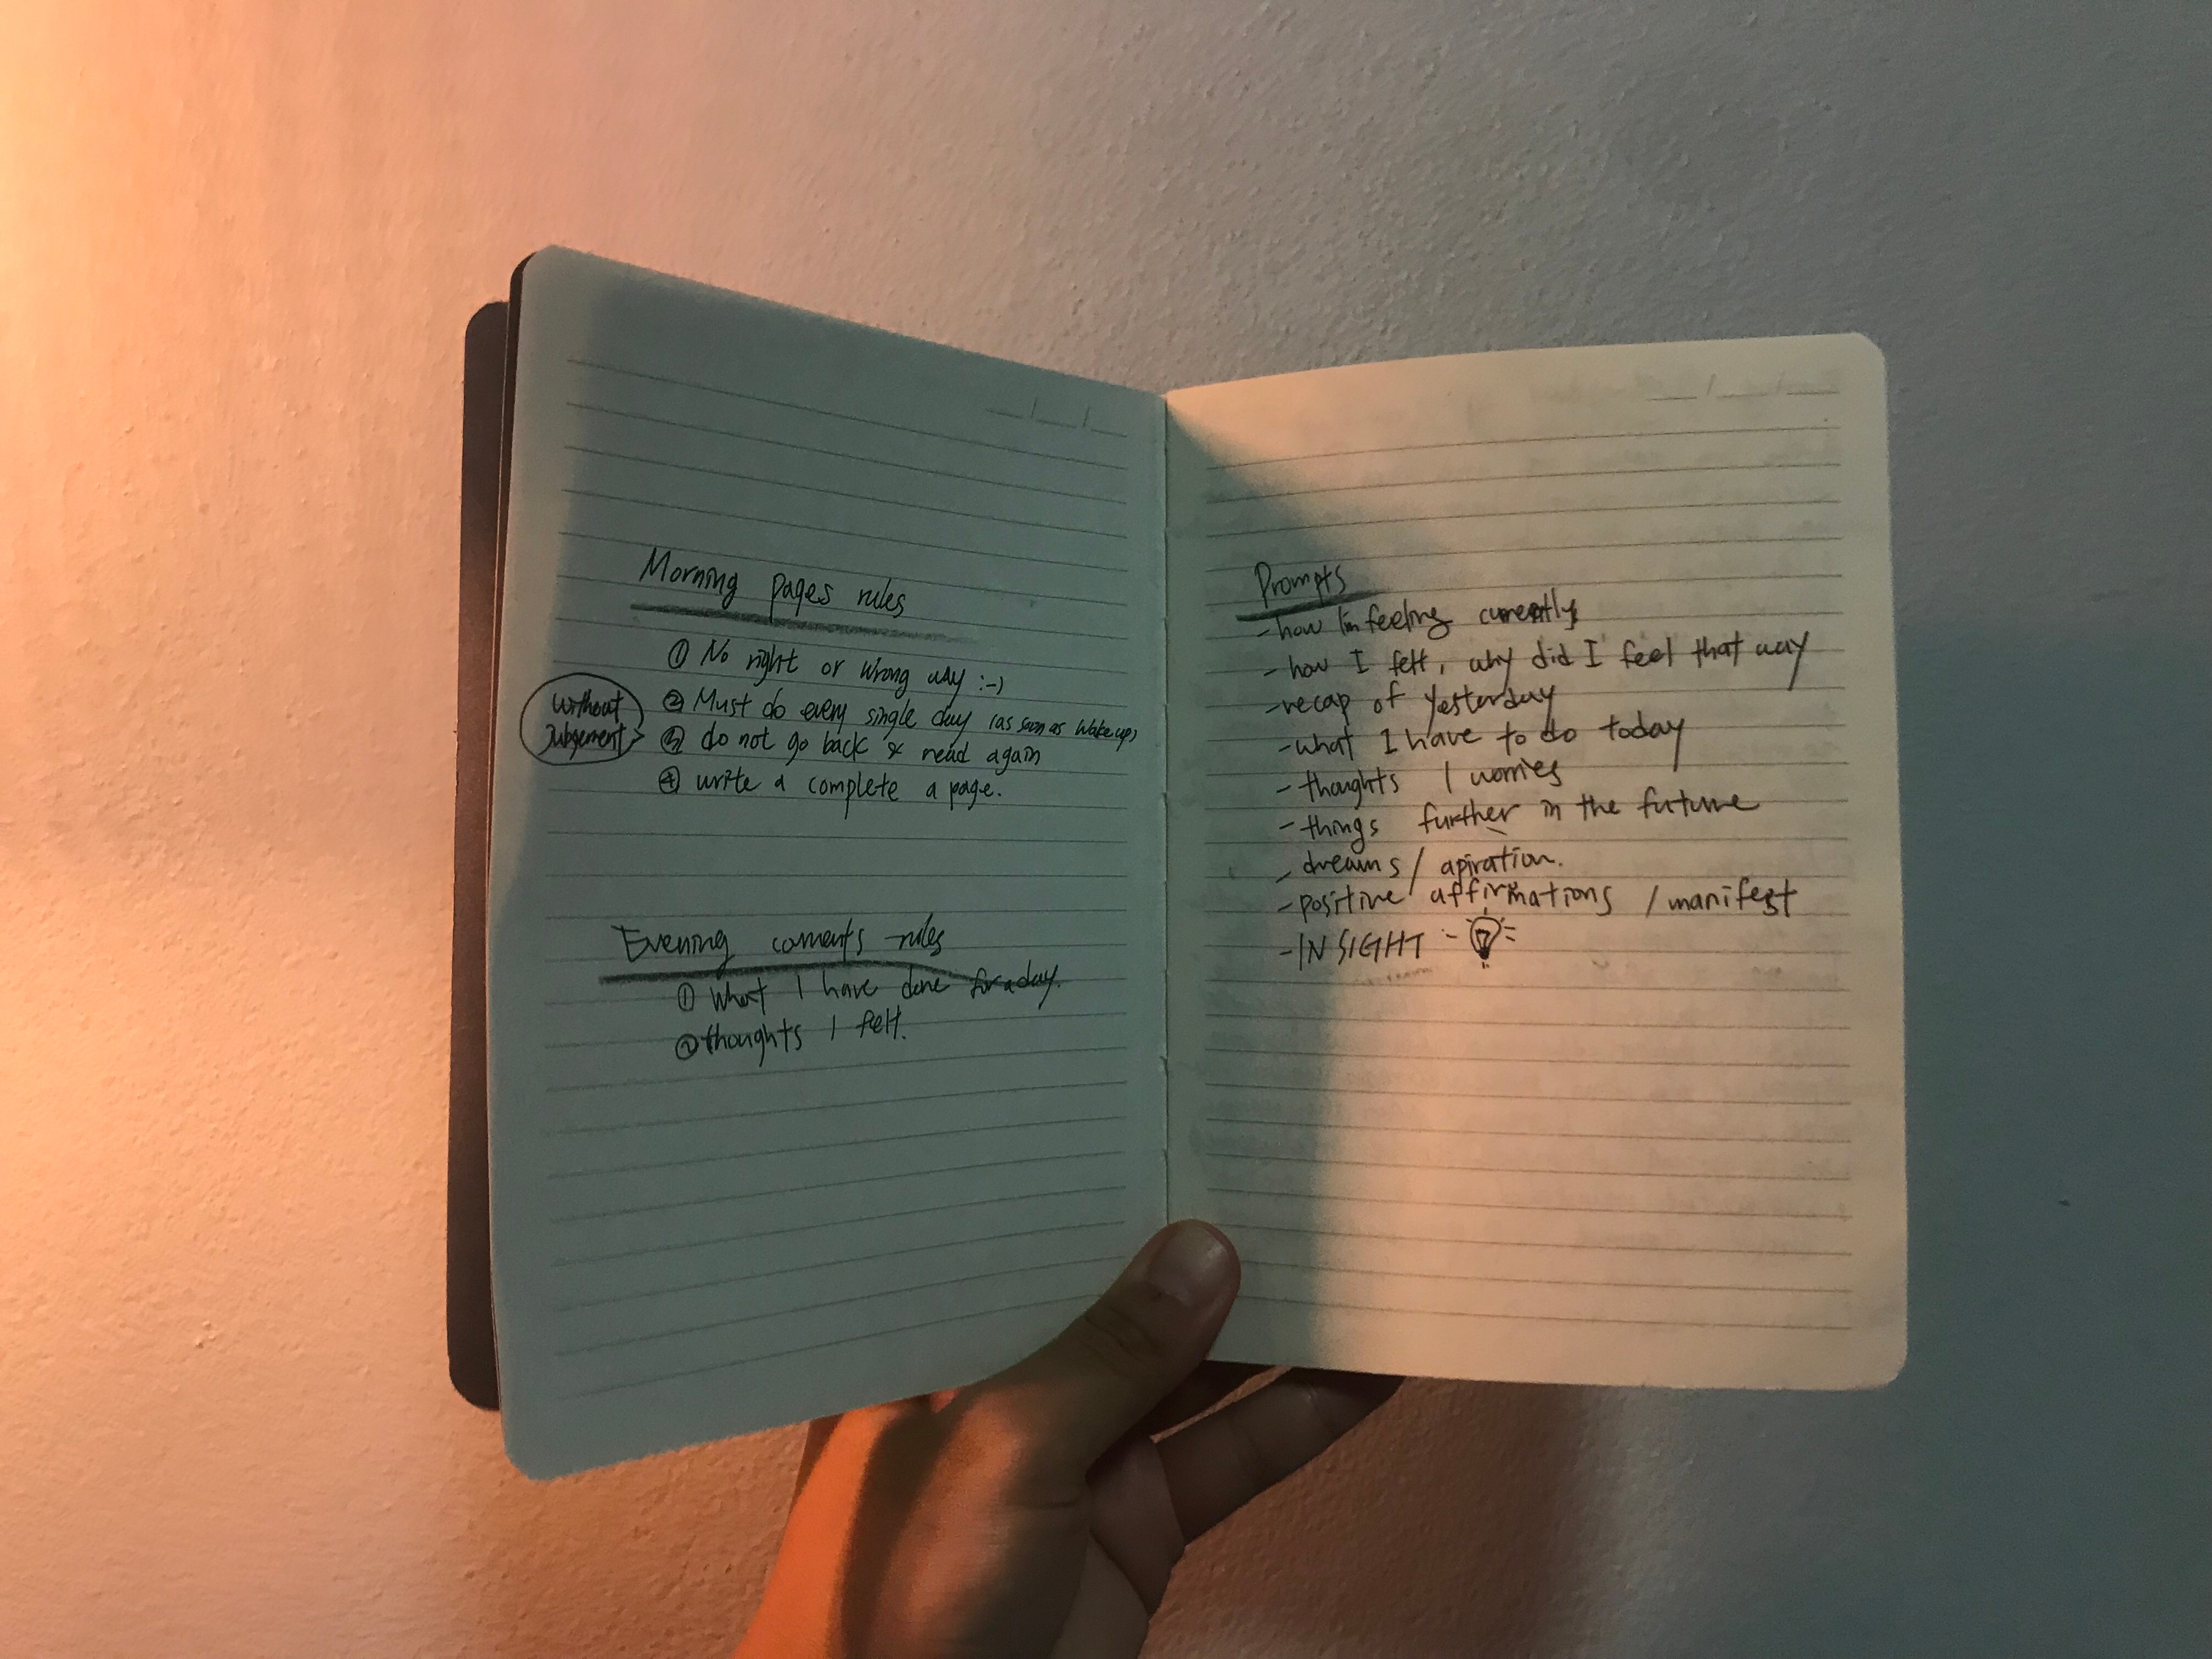 Morning pages rules
① No right or wrong way :-)
② Must do every single day (as soon as wake up)
without
Judgement
③ do not go back & read again
④ write a complete a page.
Evening coments rules
① What I have done for a day.
② thoughts I felt.
Prompts
- how I'm feeling currently
- how I felt, why did I feel that way
- recap of yesterday
- what I have to do today
- thoughts / worries
- things further in the future
- dreams / apiration.
- positive affirmations / manifest
- INSIGHT